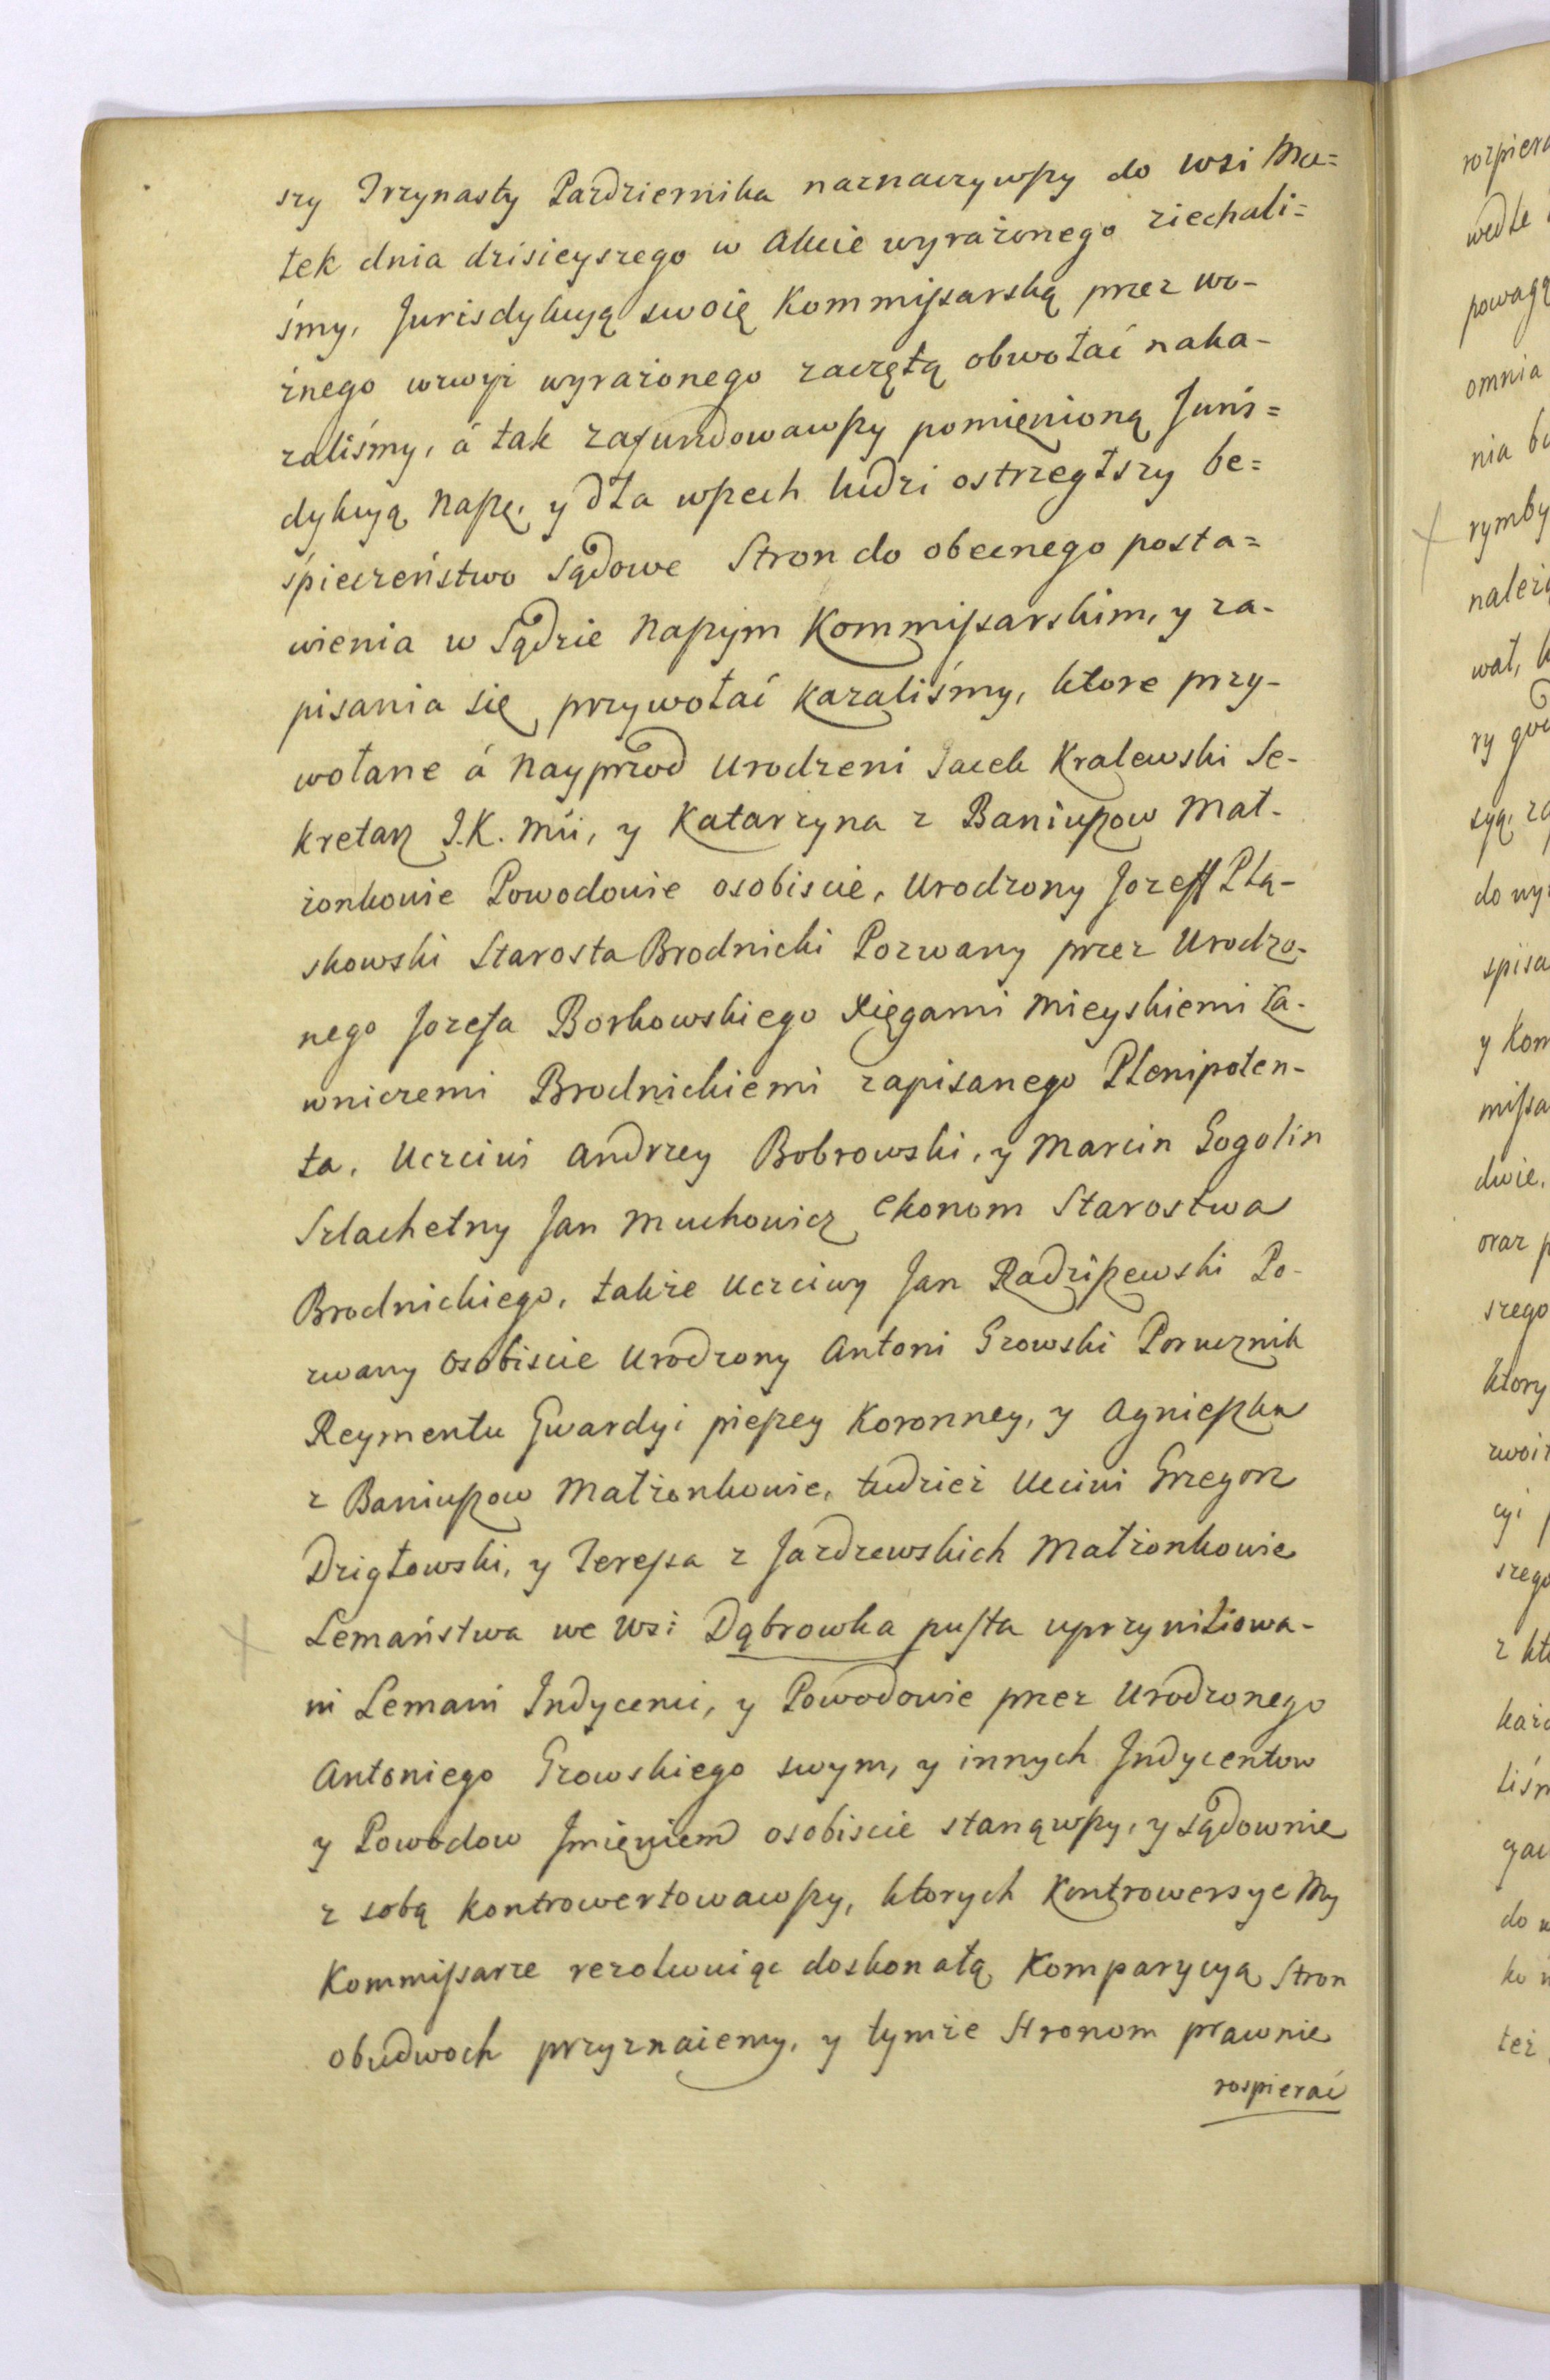 szy Trzynasty Pazdziernika naznaczywszy do wsi Ma=
tek dnia dzisieyszego w Akcie wyrażonego ziechali=
śmy, Jurisdykcyą swoię Kommissarską przez wo-
źnego wzwyż wyrażonego zaczętą obwołać naka-
zaliśmy, á tak zafundowawszy pomięnioną Juris=
dykcyą Naszę, y dla wszech ludzi ostrzegłszy be=
śpieczeństwo Sądowe Stron do obecnego posta=
wienia w Sądzie Naszym Kommissarskim, y za-
pisania się przywołać kazaliśmy, ktore przy-
wołane á Nayprzod Urodzeni Jacek Kralewski Se-
kretarz J.K. Mci, y Katarzyna z Baniuszow Mał-
żonkowie Powodowie osobiscie, Urodzony Jozeff Plą-
skowski Starosta Brodnicki Pozwany przez Urodzo-
nego Jozefa Borkowskiego Xięgami Mieyskiemi Ła-
wniczemi Brodnickiemi zapisanego Plenipoten-
ta, Uczciwi Andrzey Bobrowski, y Marcin Gogolin
Szlachetny Jan Muchowicz Ekonom Starostwa
Brodnickiego, także Uczciwy Jan Radziszewski Po-
zwany osobiscie Urodzony Antoni Growski Porucznik
Reymentu Gwardyi pieszey Koronney, y Agnieszka
z Baniuszow Małżonkowie, tudzież Ucciwi Grzegorz
Dzigłowski, y Teressa z Jazdzewskich Małżonkowie
Lemaństwa we Wsi Dąbrowka pusta uprzywiliowa-
ni Lemani Indycenci, y Powodowie przez Urodzonego
Antoniego Growskiego swym, y innych Indycentow
y Powodow Jmięniem osobiscie stanąwszy, y sądownie
z sobą kontrowertowawszy, ktorych Kontrowersye My
Kommissarze rezolwuiąc doskonałą Komparycyą Stron
obudwoch przyznaiemy, y tymże Stronom prawnie
rospierać